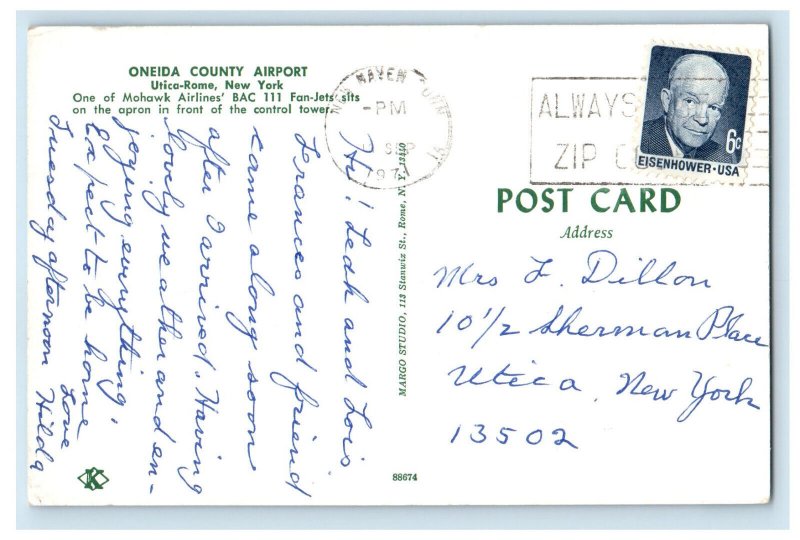 ONEIDA COUNTY AIRPORT
Utica-Rome, New York
One of Mohawk Airlines' BAC 111 Fan-Jets sits
on the apron in front of the control tower.
Hi! Leah and Lois,
Frances and friend
came along soon
after I arrived. Having
lovely weather and en-
joying everything.
Expect to be home
Tuesday afternoon
Love
Hilda
K
MARGO STUDIO, 113 Stanwix St., Rome, N. Y. 13440
88674
NEW HAVEN CONN
PM
SEP
197
ALWAYS
ZIP
6c
EISENHOWER·USA
POST CARD
Address
Mrs F. Dillon
10 1/2 Sherman Place
Utica, New York
13502